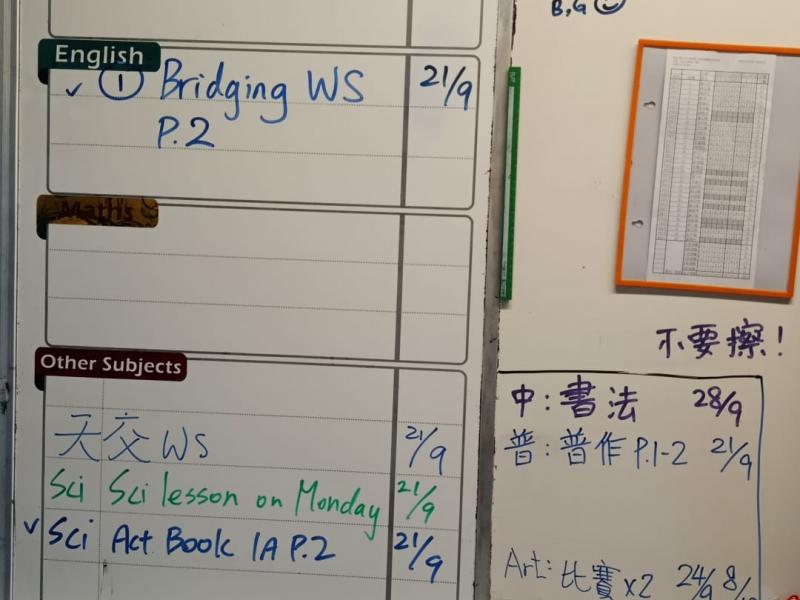 English
✓ ① Bridging WS 21/9
P.2
Maths
Other Subjects
天交 WS 21/9
Sci Sci lesson on Monday 21/9
✓ Sci Act Book 1A P.2 21/9
B,G
不要擦!
中:書法 28/9
普:普作 P.1-2 21/9
Art:比賽x2 24/9